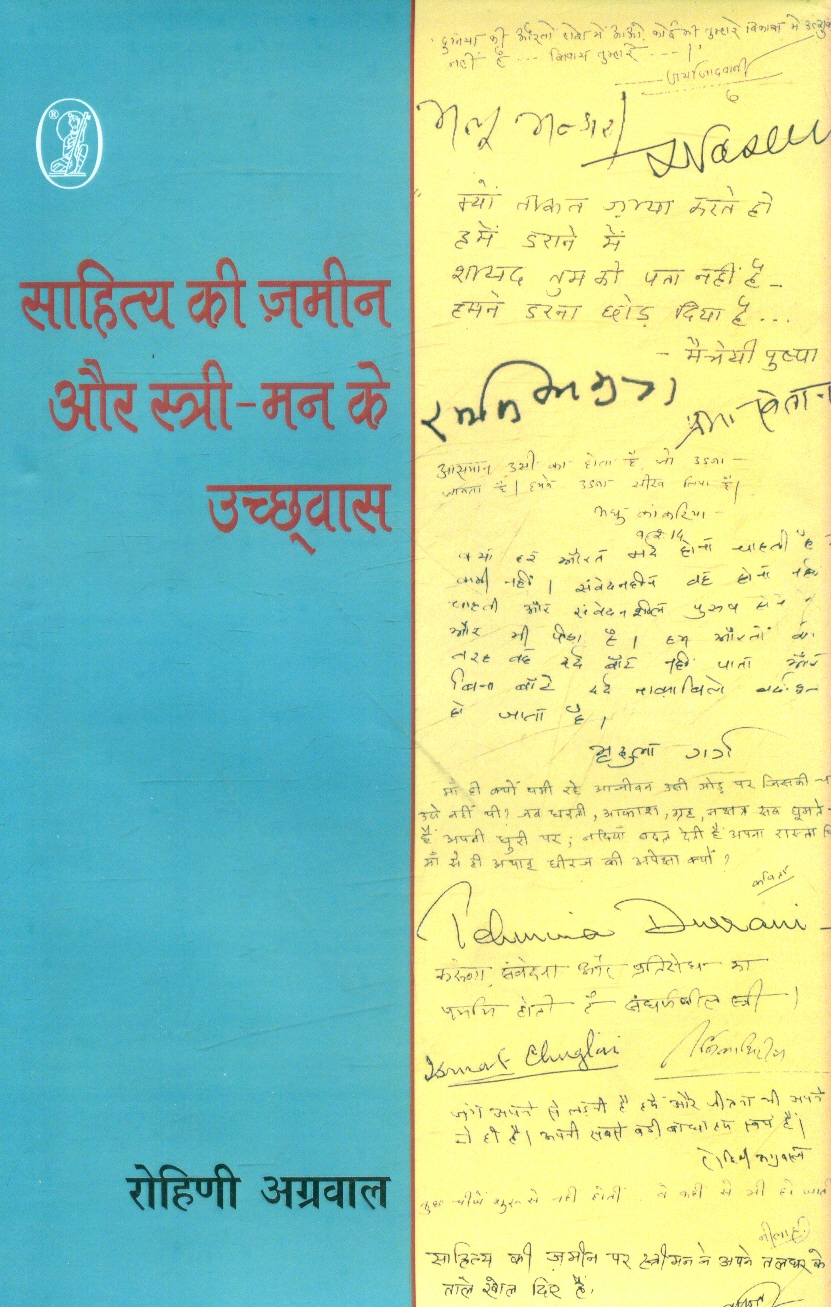 ®
साहित्य की ज़मीन
और स्त्री-मन के
उच्छ्वास
रोहिणी अग्रवाल
नहीं है --- सिवाय तुम्हारे ---।'
जयाजादवानी
मन्नू भन्डारी
क्यों ताकत ज़ाया करते हो
हमें डराने में
शायद तुम को पता नहीं है -
हमने डरना छोड़ दिया है...
- मैत्रेयी पुष्पा
प्रभा खेतान
आसमान उसी का होता है जो उड़ना -
जानता है। हमने उड़ना सीख लिया है।
मधु कांकरिया -
क्या हर औरत मर्द होना चाहती है
कभी नहीं। संवेदनहीन वह होना नहीं
चाहती और संवेदनशील पुरुष होने
और भी पीड़ा है। हम औरतों की
तरह वह दर्द बाँट नहीं पाता और
बिना बाँटे दर्द नाक़ाबिले बर्दाश्त
हो जाता है।
मृदुला गर्ग
माँ ही क्यों थमी रहे आजीवन उसी मोड़ पर जिसकी
उसे नहीं थी? जब धरती, आकाश, ग्रह, नक्षत्र सब घूमते
हैं अपनी धुरी पर; नदियाँ बदल देती हैं अपना रास्ता
माँ से ही अथाह धीरज की अपेक्षा क्यों?
कविता
Tehmina Durrani
करुणा, संवेदना और प्रतिरोध का
होती है संघर्षशील स्त्री।
Ismat Chughtai
जंग अपने से लड़नी है हमें और जीतना भी अपने
से ही है। अपनी सबसे बड़ी बाधा हम स्वयं हैं।
रोहिणी अग्रवाल
कुछ चीजें शुरू से नहीं होतीं. वे कहीं से भी हो जाती
साहित्य की ज़मीन पर स्त्रीमन ने अपने तलघर के
ताले खोल दिए हैं.